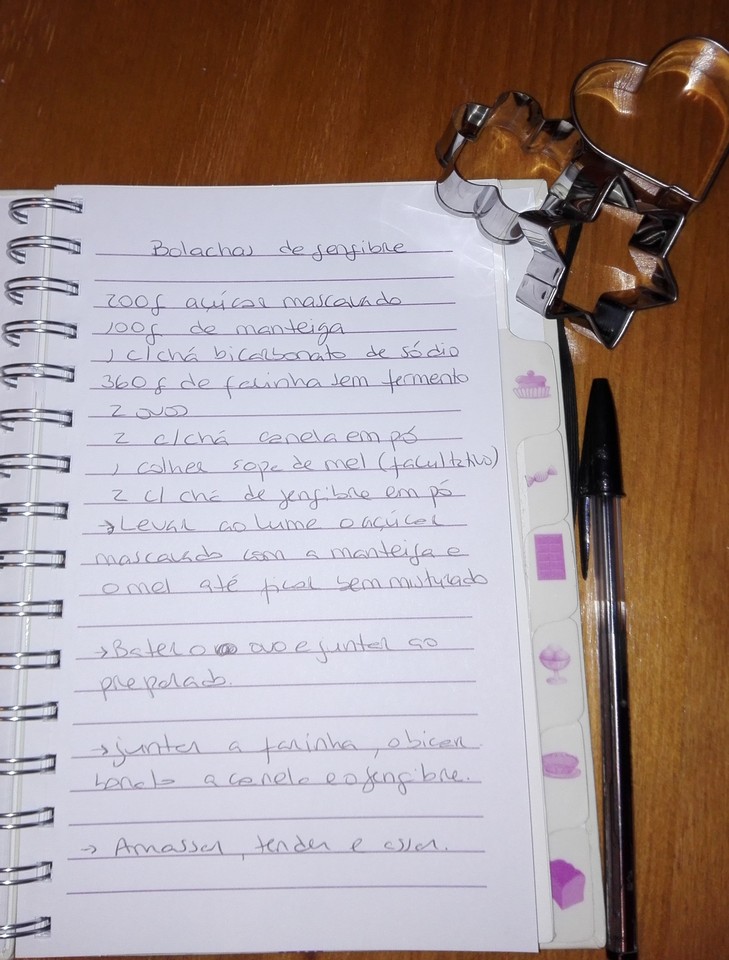 Bolachas de gengibre
200g açúcar mascavado
100g de manteiga
1 c/chá bicarbonato de sódio
360g de farinha sem fermento
2 ovos
2 c/chá canela em pó
1 colher sopa de mel (facultativo)
2 c/ chá de gengibre em pó
→ Levar ao lume o açúcar
mascavado com a manteiga e
o mel até ficar bem misturado
→ Bater o ovo e juntar ao
preparado.
→ juntar a farinha, o bicar
bonato a canela e o gengibre.
→ Amassar, tender e assar.